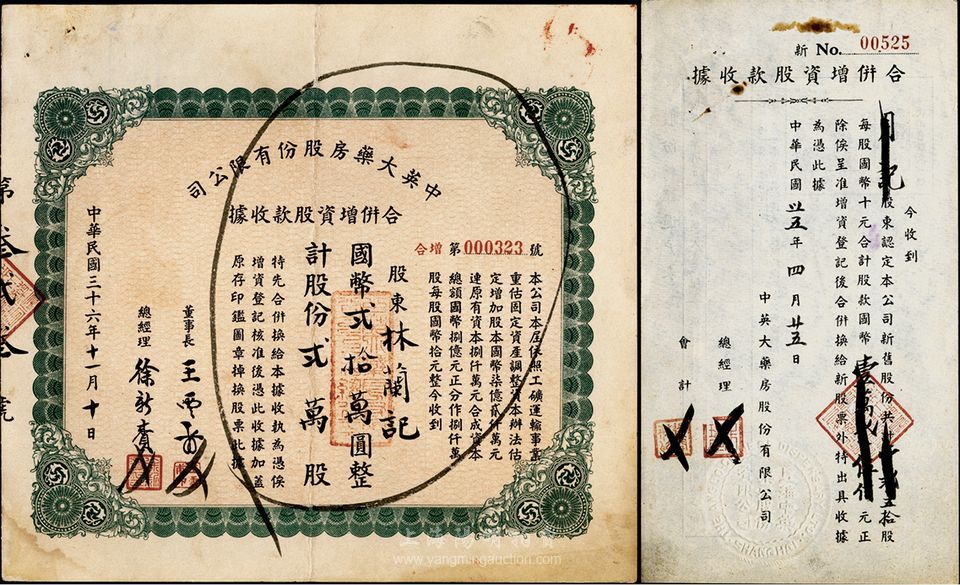 中英大藥房股份有限公司
合併增資股款收據
合增 第 000323 號
本公司本屆依照工礦運輸事業
重估固定資產調整資本辦法估
定增加股本國幣柒億貳仟萬元
連原有資本捌仟萬元合成資本
總額國幣捌億元正分作捌仟萬
股每股國幣拾元整今收到
股東 林蘭記
國幣 弍拾萬 圓整
計股份 弍萬 股
特先合併換給本據收執為憑俟
增資登記核准後憑此收據加蓋
原存印鑑圖章掉換股票此據
董事長
總經理
中華民國三十六年十一月十日
新 No. 00525
合併增資股款收據
今收到
月記 股東認定本公司新舊股份共 五拾股
每股國幣十元合計股款國幣 元正
除俟呈准增資登記後合併換給新股票外特出具收據
為憑此據
中華民國 廿五年 四月 廿五日
中英大藥房股份有限公司
總經理
會計
上海陽明拍賣
www.yangmingauction.com